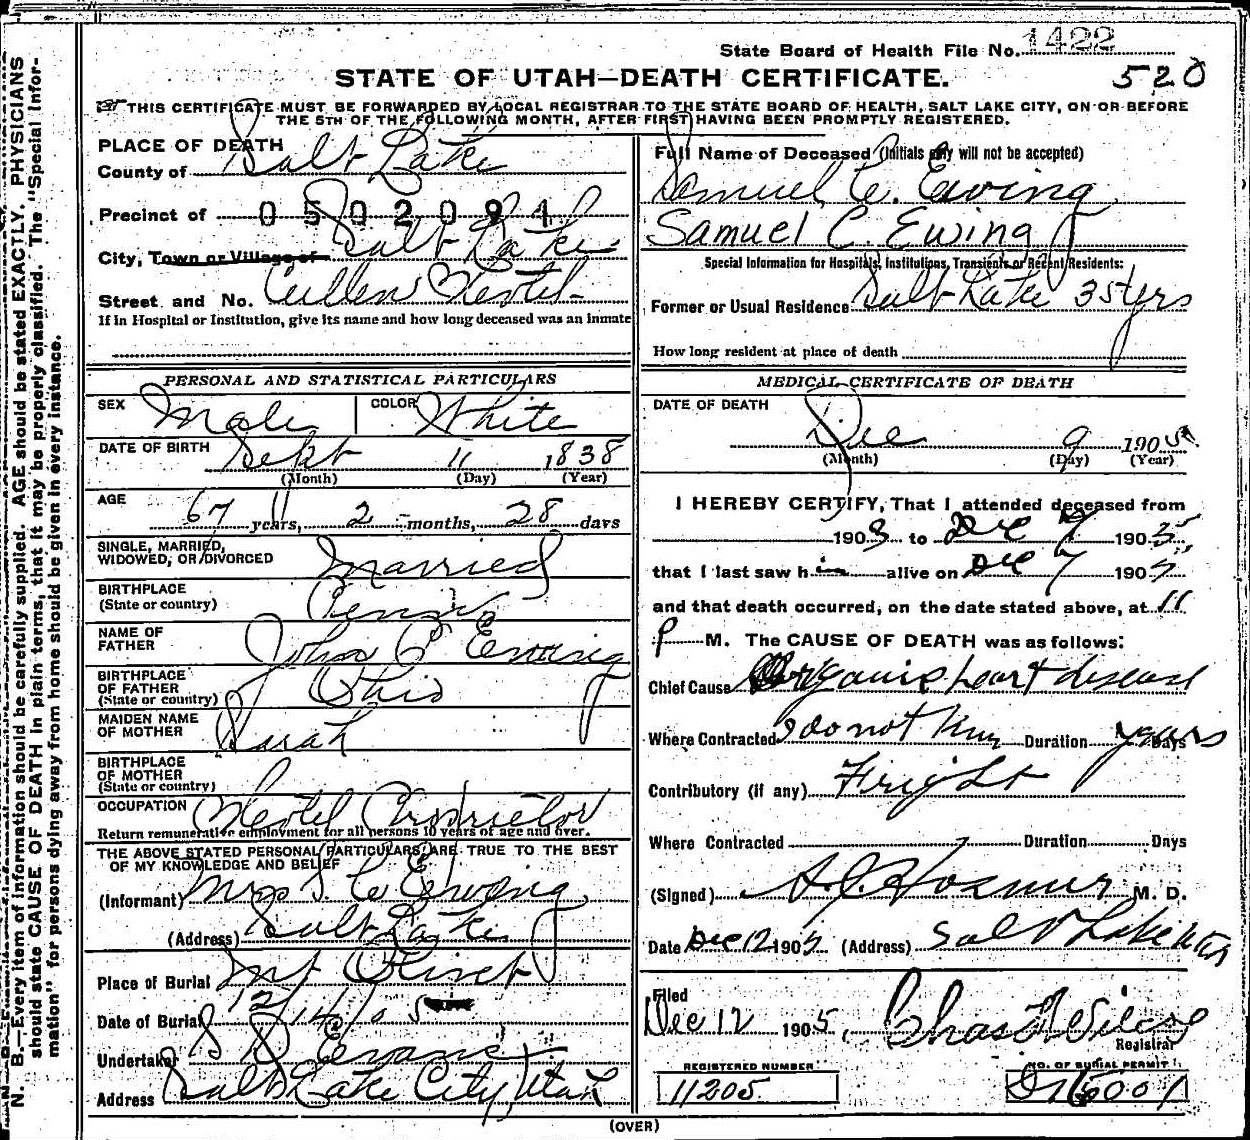 State Board of Health File No. 1422
520
STATE OF UTAH—DEATH CERTIFICATE.
THIS CERTIFICATE MUST BE FORWARDED BY LOCAL REGISTRAR TO THE STATE BOARD OF HEALTH, SALT LAKE CITY, ON OR BEFORE
THE 5TH OF THE FOLLOWING MONTH, AFTER FIRST HAVING BEEN PROMPTLY REGISTERED.
PLACE OF DEATH
County of Salt Lake
Precinct of 0502094
City, Town or Village of Salt Lake
Street and No. Cullen Hotel
If in Hospital or Institution, give its name and how long deceased was an inmate
PERSONAL AND STATISTICAL PARTICULARS
SEX Male COLOR White
DATE OF BIRTH Sept 11 1838
(Month) (Day) (Year)
AGE
67 years, 2 months, 28 days
SINGLE, MARRIED,
WIDOWED, OR DIVORCED Married
BIRTHPLACE
(State or country)
NAME OF
FATHER John C Ewing
BIRTHPLACE
OF FATHER Ohio
(State or country)
MAIDEN NAME
OF MOTHER Sarah
BIRTHPLACE
OF MOTHER
(State or country)
OCCUPATION Hotel Proprietor
Return remunerative employment for all persons 10 years of age and over.
THE ABOVE STATED PERSONAL PARTICULARS ARE TRUE TO THE BEST
OF MY KNOWLEDGE AND BELIEF
(Informant) Mrs S. C Ewing
(Address) Salt Lake
Place of Burial Mt Olivet
Date of Burial 12/14/05
Undertaker S D Evans
Address Salt Lake City Utah
Full Name of Deceased (Initials only will not be accepted)
Samuel C. Ewing
Samuel C. Ewing
Special Information for Hospitals, Institutions, Transients or Recent Residents:
Former or Usual Residence Salt Lake 35 yrs
How long resident at place of death
MEDICAL CERTIFICATE OF DEATH
DATE OF DEATH
Dec 9 1905
(Month) (Day) (Year)
I HEREBY CERTIFY, That I attended deceased from
1903 to Dec 9 1905
that I last saw him alive on Dec 7 1905
and that death occurred, on the date stated above, at 11
P M. The CAUSE OF DEATH was as follows:
Chief Cause Organic heart disease
Where Contracted I do not know Duration years Days
Contributory (if any) Fright
Where Contracted Duration Days
(Signed) A. J. Hosmer M. D.
Date Dec 12 1905 (Address) Salt Lake Utah
Filed
Dec 12 1905, Chas F Wilcox
Registrar
REGISTERED NUMBER
11205
NO. OF BURIAL PERMIT
(OVER)
N. B.—Every item of information should be carefully supplied. AGE should be stated EXACTLY. PHYSICIANS
should state CAUSE OF DEATH in plain terms, that it may be properly classified. The "Special Infor-
mation" for persons dying away from home should be given in every instance.